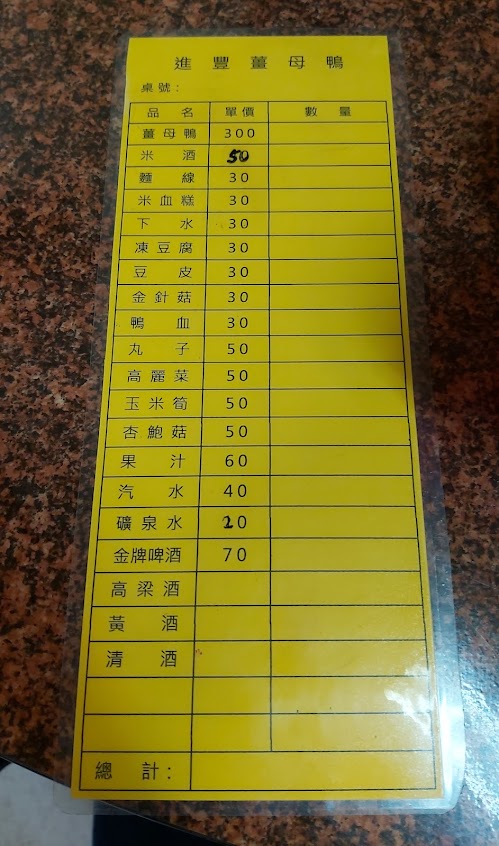 進豐薑母鴨
桌號：
品名 單價 數量
薑母鴨 300
米酒 50
麵線 30
米血糕 30
下水 30
凍豆腐 30
豆皮 30
金針菇 30
鴨血 30
丸子 50
高麗菜 50
玉米筍 50
杏鮑菇 50
果汁 60
汽水 40
礦泉水 20
金牌啤酒 70
高梁酒
黃酒
清酒
總計：